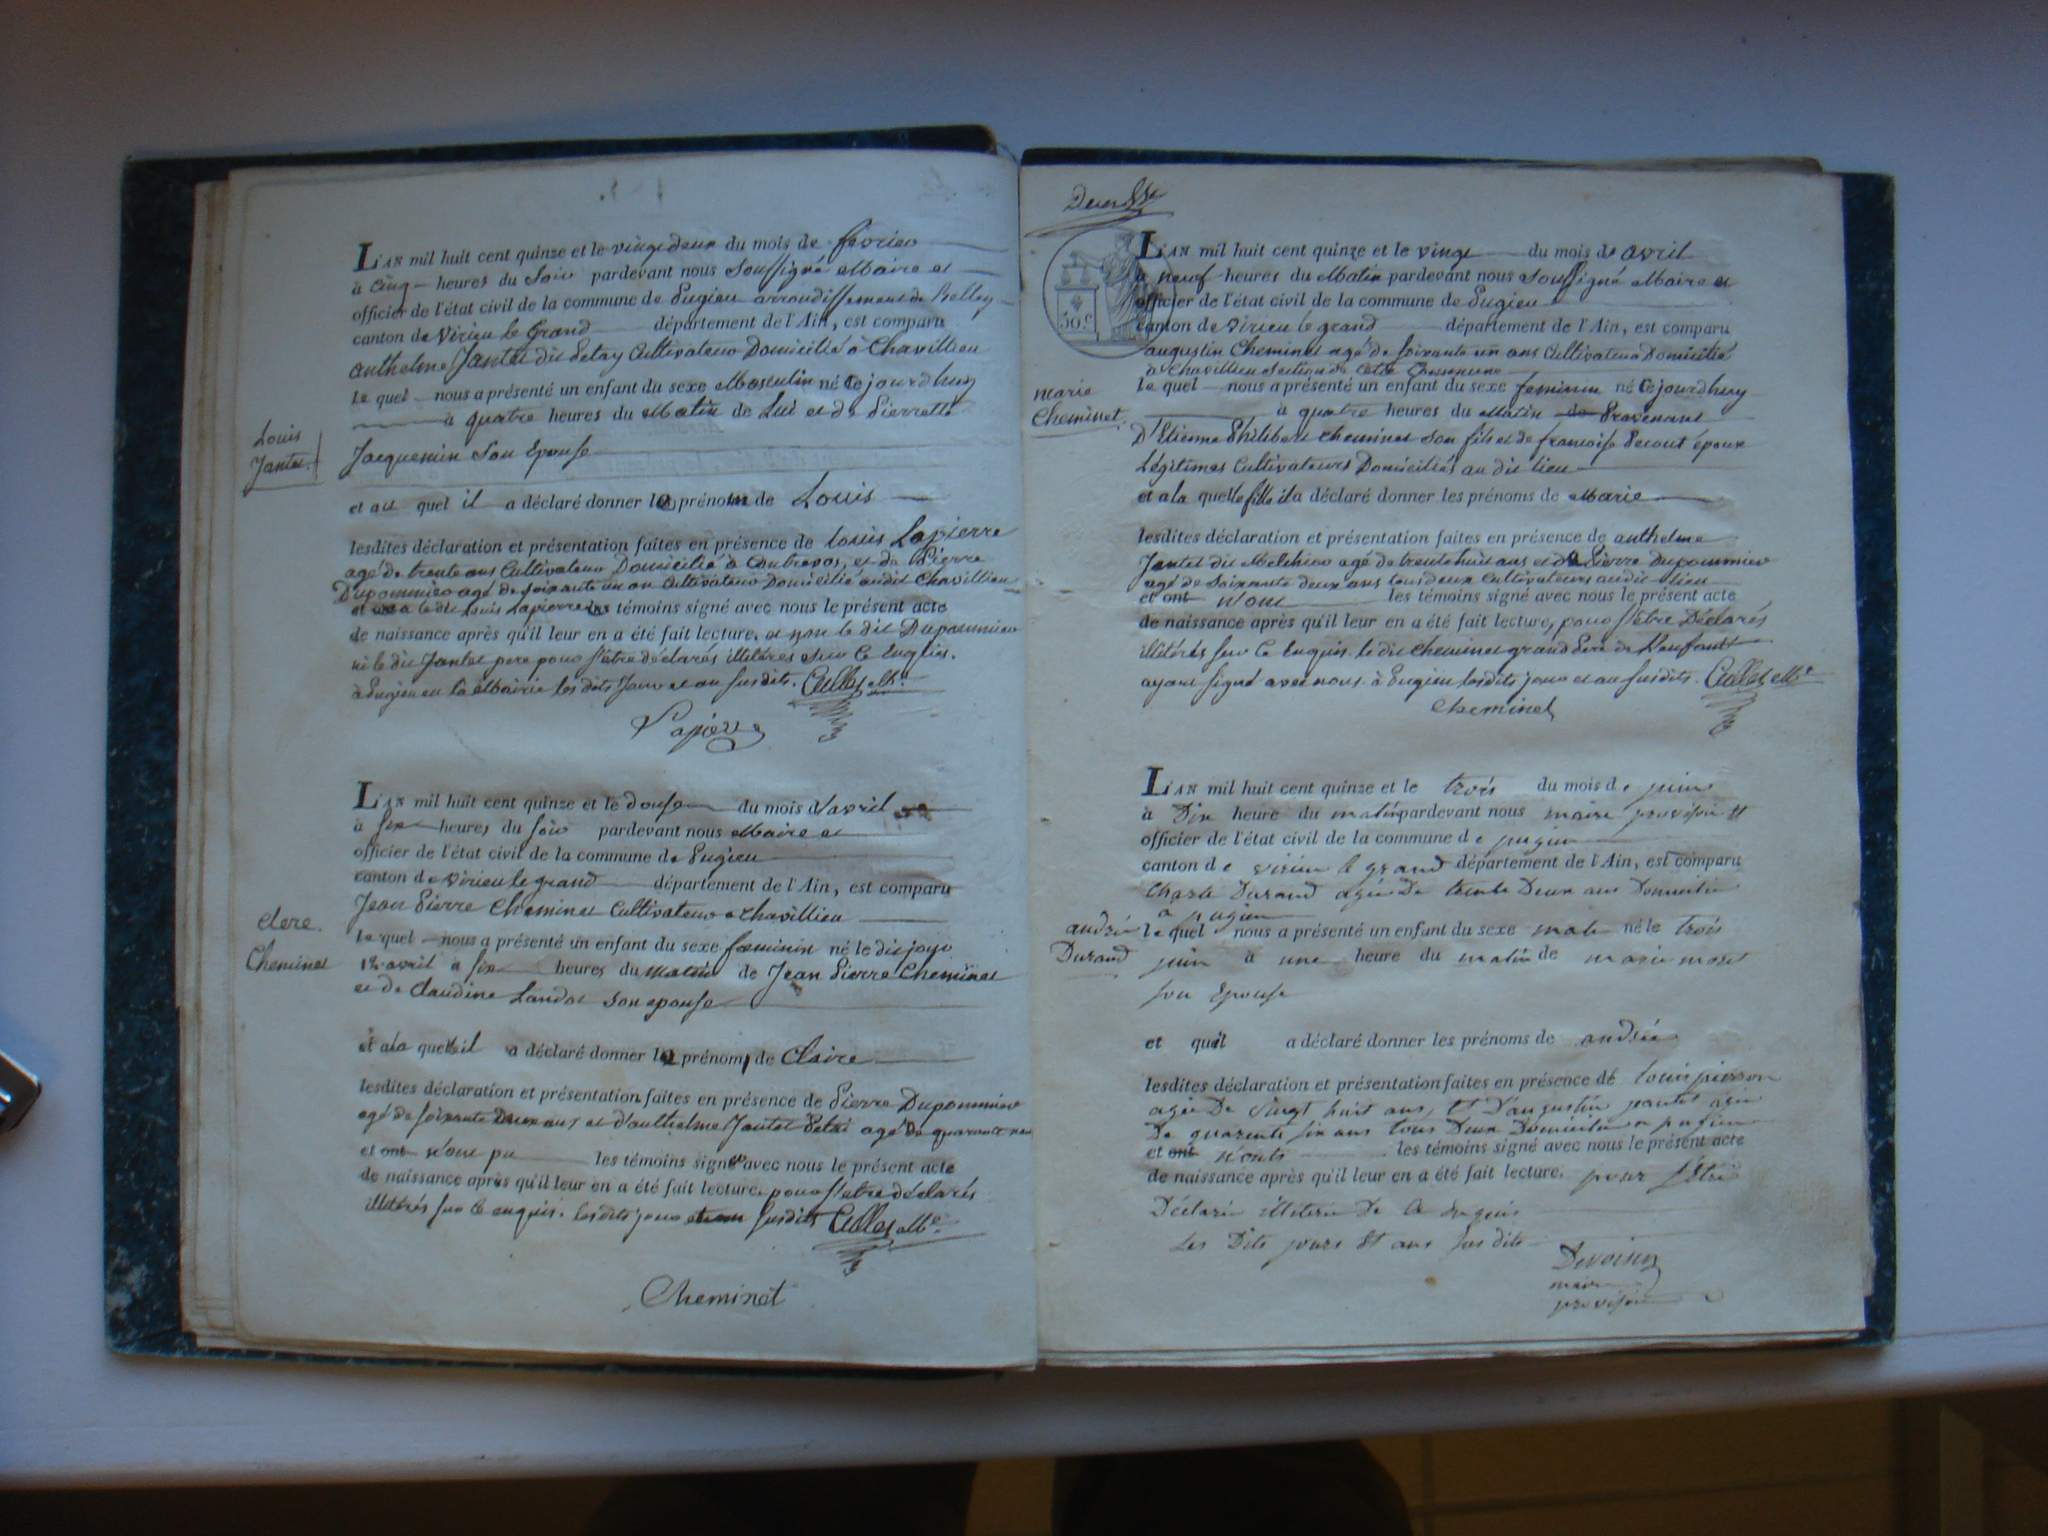 L'AN mil huit cent quinze et le vingt deux du mois de fevrier
à cinq heures du Soir pardevant nous Soussigné Maire et
officier de l'état civil de la commune de Pugieu arrondissement de Belley
canton de Virieu le Grand département de l'Ain, est comparu
anthelme Jantet dit Cultivateur Domicilié à Chavillieu
Le quel nous a présenté un enfant du sexe Masculin né Cejourdhuy
à quatre heures du Matin de Lui et de Pierrette
Louis
Jantet
Jacquemin Son Epouse
et au quel il a déclaré donner le prénom de Louis
lesdites déclaration et présentation faites en présence de Louis Lapierre
agé de trente ans Cultivateur Domicilié à et de Pierre
Dupommier agé de soixante un an Cultivateur Domicilié audit Chavillieu
et a le dit Louis Lapierre les témoins signé avec nous le présent acte
de naissance après qu'il leur en a été fait lecture, et non le dit Dupommier
ni le dit Jantet pere pour s'etre déclarés illitérés sur ce enquis.
à Pugieu en la Mairie les dits Jour et an susdits. Cullet Mre
Lapierre
L'AN mil huit cent quinze et le douse du mois d'avril
à six heures du soir pardevant nous Maire et
officier de l'état civil de la commune de Pugieu
canton de Virieu le grand département de l'Ain, est comparu
Jean Pierre Cheminet Cultivateur a Chavillieu
clere
Cheminet
Le quel nous a présenté un enfant du sexe feminin né le dit jour
12 avril a six heures du matin de Jean Pierre Cheminet
et de Claudine Landot son epouse
et a la quelle il a déclaré donner le prénom de Claire
lesdites déclaration et présentation faites en présence de Pierre Dupommier
agé de soixante Deux ans et d'anthelme Jantet agé de quarante
et ont n'ont pu les témoins signer avec nous le présent acte
de naissance après qu'il leur en a été fait lecture, pour s'etre déclarés
illitérés sur ce enquis. lesdits jour et an susdits Cullet Mre
Cheminet
L'AN mil huit cent quinze et le vingt du mois de avril
à neuf heures du Matin pardevant nous Soussigné Maire et
officier de l'état civil de la commune de Pugieu
50 c
canton de Virieu le grand département de l'Ain, est comparu
augustin Cheminet agé de soixante un ans Cultivateur Domicilié
à Chavillieu Section de cette Commune
marie
Cheminet
Le quel nous a présenté un enfant du sexe feminin né Cejourdhuy
à quatre heures du Matin de Provenant
D'Etienne Philibert Cheminet son fils et de francoise Pecout époux
Légitimes Cultivateurs Domiciliés au dit lieu
et a la quelle fille il a déclaré donner les prénoms de Marie
lesdites déclaration et présentation faites en présence de anthelme
Jantet dit Melchior agé de trente huit ans et de Pierre Dupommier
agé de soixante deux ans tous deux Cultivateurs audit lieu
et ont n'ont les témoins signé avec nous le présent acte
de naissance après qu'il leur en a été fait lecture, pour s'etre Déclarés
illitérés sur ce enquis. le dit Cheminet grand Pere de L'enfant
ayant signé avec nous. à Pugieu lesdits jour et an susdits. Cullet Mre
Cheminet
L'AN mil huit cent quinze et le trois du mois de juin
à Dix heure du matin pardevant nous maire provisoir et
officier de l'état civil de la commune de pugieu
canton de virieu le grand département de l'Ain, est comparu
Charle Durand agée De trente Deux ans Domicilié
a pugieu
andrée
Durand
le quel nous a présenté un enfant du sexe male né le trois
juin à une heure du matin de marie moret
son Epouse
et quil a déclaré donner les prénoms de andrée
lesdites déclaration et présentation faites en présence de louis pierron
agée De Vingt huit ans, et D'augustin jantet agée
De quarente six ans tous Deux Domicilié a pugieu
et ont n'onts les témoins signé avec nous le présent acte
de naissance après qu'il leur en a été fait lecture. pour s'être
Déclaré illitéré De Ce enquis
Les Dits jours et ans susdits
Devoisin
maire
provisoire